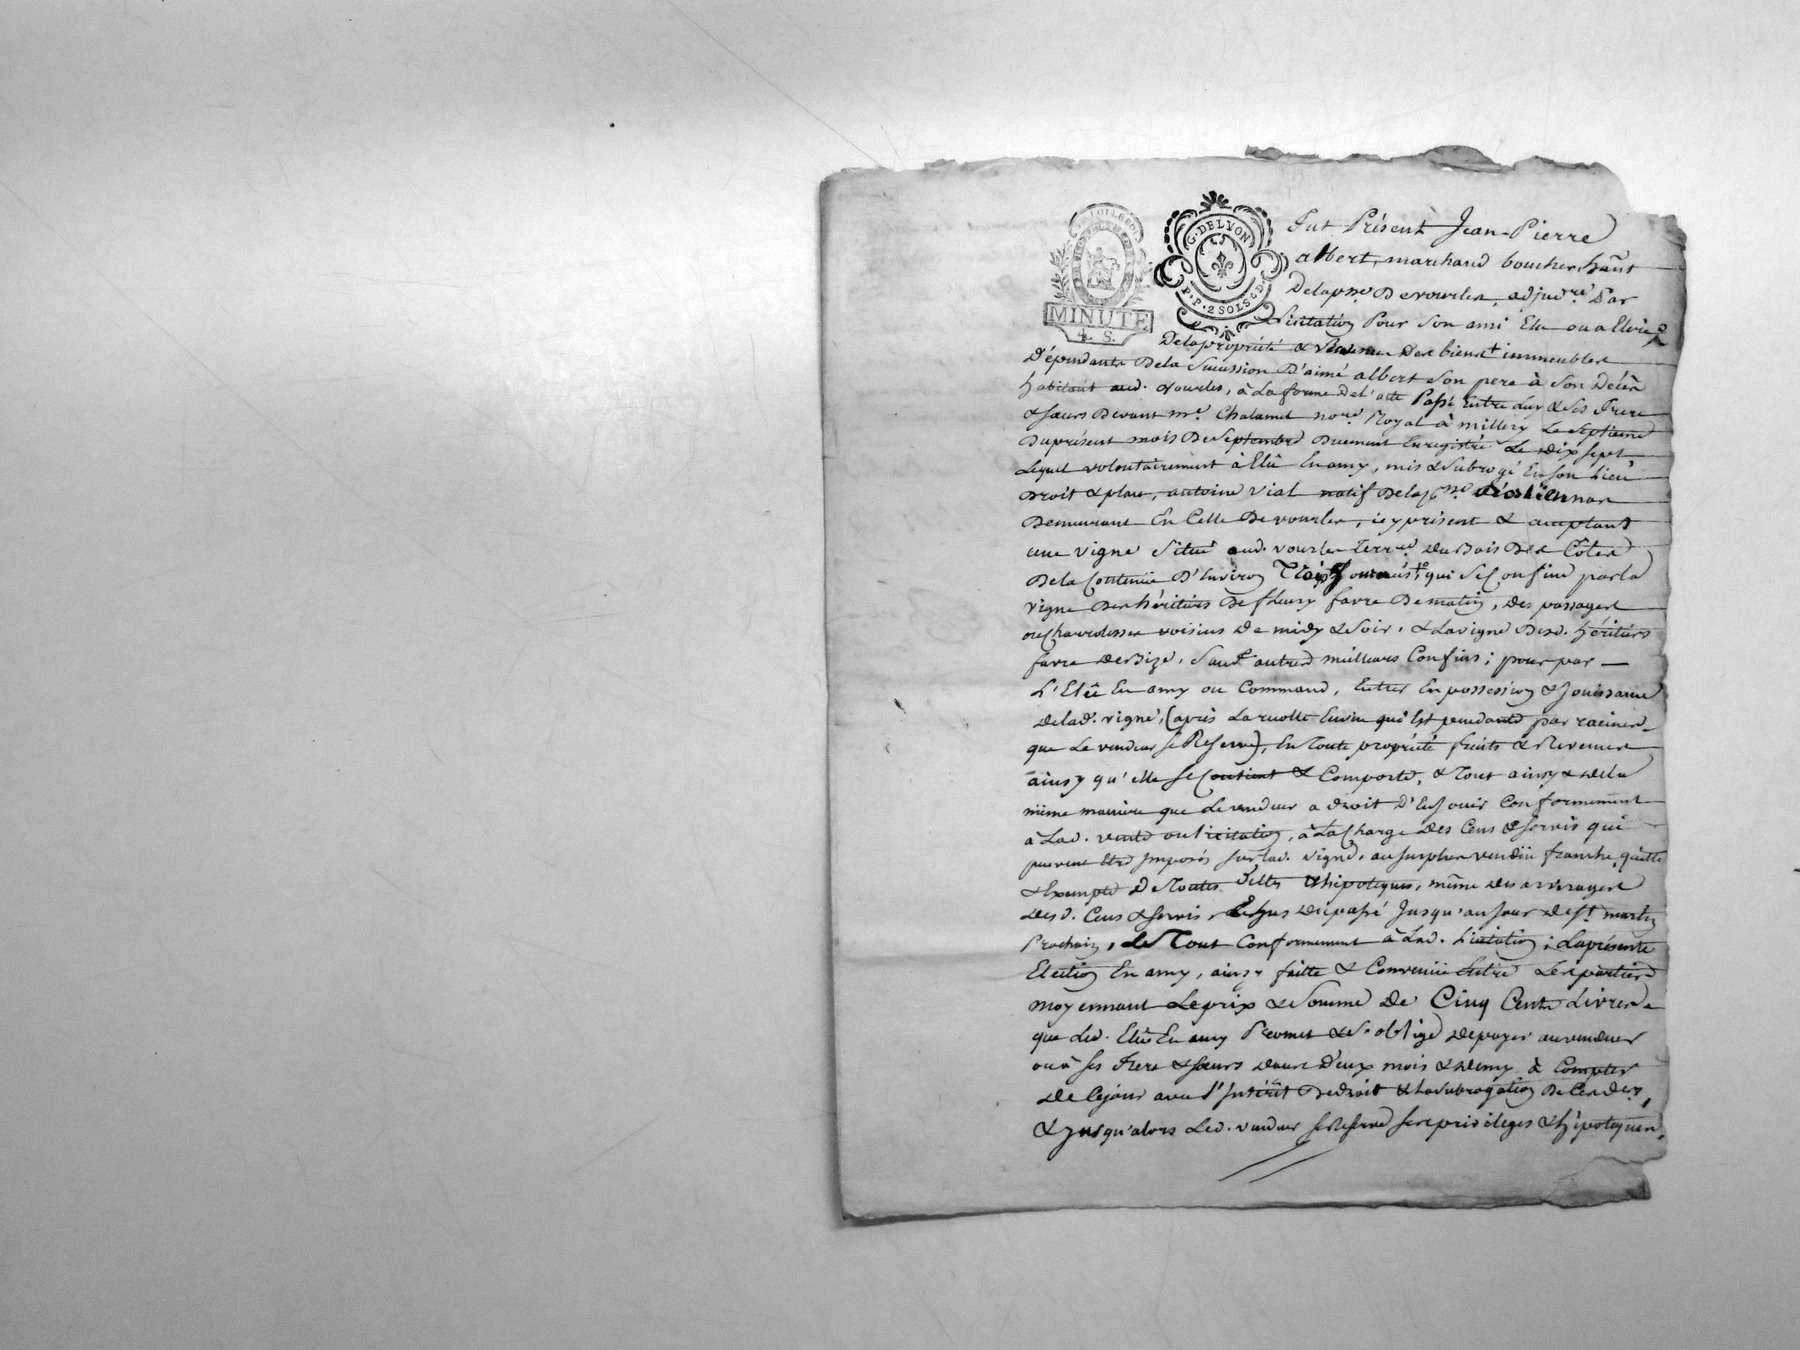 G. DE LYON
P. P. 2 SOLS 8 D.
MINUTE
4. S.
Fut Présent Jean-Pierre
albert, marchand boucher, hant
Delap.sse Devourles, adjud.re Par
Licitation Pour son ami Elu ou a Elire
Dela propriété & des biens immeubles
D'épendants Dela Succession D'aimé albert son pere à son Décès
habitant aud. vourles, à La forme De l'acte Passé Entre Luy & ses Frere
& sœurs Devant me. Chalamel nore. Royal à millery Le Septieme
Du présent mois De Septembre Duement Enregistré Le Dix sept
Lequel volontairement à Elû En amy, mis & subrogé En son Lieu
Droit & place, antoine Vial natif Delap.sse
Demeurant En Celle De vourles, icy présent & acceptant
une vigne située aud. vourles Terre. Du Bois Des Côtes
De la Contenüe D'Environ Trois qui se Confine par la
vigne Des héritiers De fleury favre De matin, des passages
ou Charrolesses voisins De midy & soir, & La vigne Desd. héritiers
favre De Bize, sauf autres meilleurs Confins; pour par
L'Elû En amy ou Command, Entrer En possession & Jouissance
De lad. vigne, (après La recolte qui Est pendante par racines
que Le vendeur se Reserve), En Toute propriété fruits & Revenus
ainsy qu'elle se Contient & Comporte, & Tout ainsy & De la
même maniere que Le vendeur a Droit D'En Jouir Conformement
à Lad. vente ou licitation, à La Charge Des Cens & servis qui
peuvent être Imposés sur Lad. vigne, au surplus vendüe franche, quitte
& Exempte De Toutes Dettes & hipoteques, même Des arrérages
Desd. Cens & servis Du passé Jusqu'au Jour De St. martin
Prochain, Le Tout Conformement à Lad. Licitation; La présente
Election En amy, ainsy faitte & Convenüe Entre Les parties
moyennant Le prix & Somme De Cinq Cents Livres
que Led. Elû En amy Promet & s'oblige De payer au vendeur
ou à ses Frere & sœurs dans Deux mois & Demy à Compter
De Ce jour avec l'Intérêt De Droit & la subrogation De Ces Ders,
& Jusqu'alors Led. vendeur se Reserve ses privileges & hipoteques,